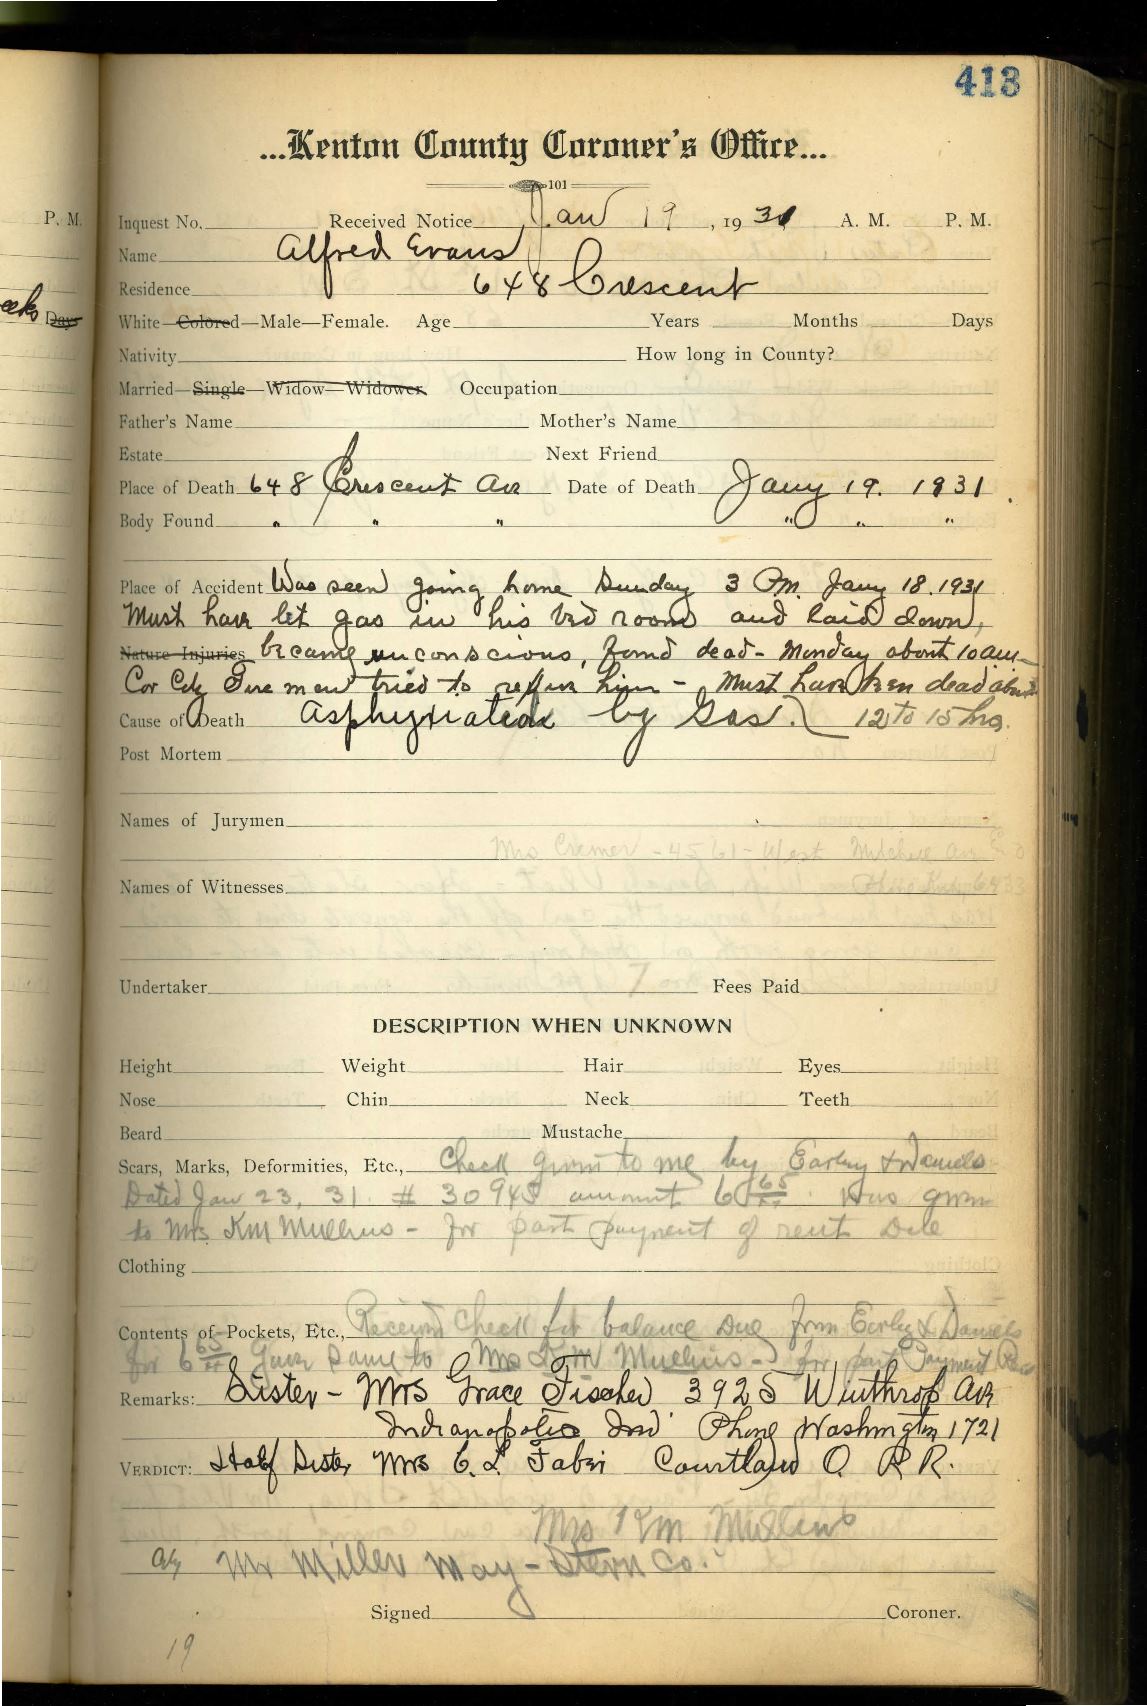 413
...Kenton County Coroner's Office...
101
P. M.
Inquest No. Received Notice Jan 19, 1931 A. M. P. M.
Name Alfred Evans
Residence 648 Crescent
eeks Days
White—Colored—Male—Female. Age Years Months Days
Nativity How long in County?
Married—Single—Widow—Widower. Occupation
Father's Name Mother's Name
Estate Next Friend
Place of Death 648 Crescent Ave Date of Death Jany 19. 1931.
Body Found " " " " " "
Place of Accident Was seen going home Sunday 3 P.M. Jany 18. 1931
Must have let gas in his bed room and laid down,
Nature Injuries became unconscious, found dead - Monday about 10 am -
Cov City Fire men tried to him - Must have been dead about
Cause of Death Asphyxiated by Gas. 12 to 15 hrs.
Post Mortem
Names of Jurymen
Mrs Cremer - 4561 - West Mitchell Ave
Names of Witnesses
Undertaker Fees Paid
DESCRIPTION WHEN UNKNOWN
Height Weight Hair Eyes
Nose Chin Neck Teeth
Beard Mustache
Scars, Marks, Deformities, Etc., Check given to me by Earley & Daniels
Dated Jan 23, 31. # 30945 amount 6 65/xx was given
to Mrs Km Mullins - for part payment of rent Due
Clothing
Contents of Pockets, Etc., Received Check for balance Due from Earley & Daniels
for 6 65/xx Gave same to Mrs Km Mullins - for part Payment
Remarks: Sister - Mrs Grace Fischer 3925 Winthrop Ave
Indianapolis Ind Phone Washington 1721
VERDICT: Half Sister Mrs C. L. Faber Courtland O R R.
Mrs Km Mullins
Aty Mr Miller May-Stern Co.
Signed Coroner.
19